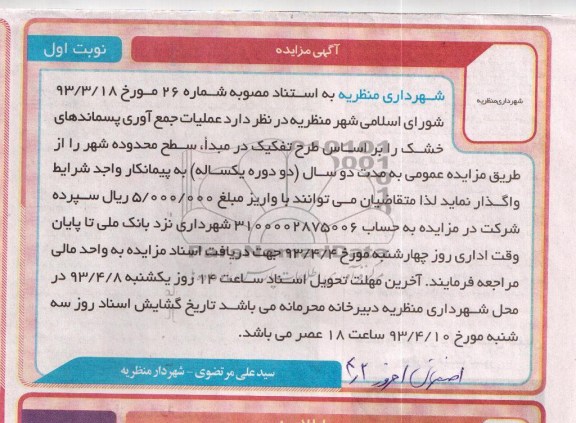 آگهی مزایده
نوبت اول
شهرداری منظریه
شهرداری منظریه به استناد مصوبه شماره ۲۶ مورخ ۹۳/۳/۱۸
شورای اسلامی شهر منظریه در نظر دارد عملیات جمع آوری پسماندهای
خشک را بر اساس طرح تفکیک در مبدأ، سطح محدوده شهر را از
طریق مزایده عمومی به مدت دو سال (دو دوره یکساله) به پیمانکار واجد شرایط
واگذار نماید لذا متقاضیان می توانند با واریز مبلغ ۵/۰۰۰/۰۰۰ ریال سپرده
شرکت در مزایده به حساب ۳۱۰۰۰۰۲۸۷۵۰۰۶ شهرداری نزد بانک ملی تا پایان
وقت اداری روز چهارشنبه مورخ ۹۳/۴/۴ جهت دریافت اسناد مزایده به واحد مالی
مراجعه فرمایند. آخرین مهلت تحویل اسناد ساعت ۱۴ روز یکشنبه ۹۳/۴/۸ در
محل شهرداری منظریه دبیرخانه محرمانه می باشد تاریخ گشایش اسناد روز سه
شنبه مورخ ۹۳/۴/۱۰ ساعت ۱۸ عصر می باشد.
سید علی مرتضوی - شهردار منظریه
اصفهان امروز